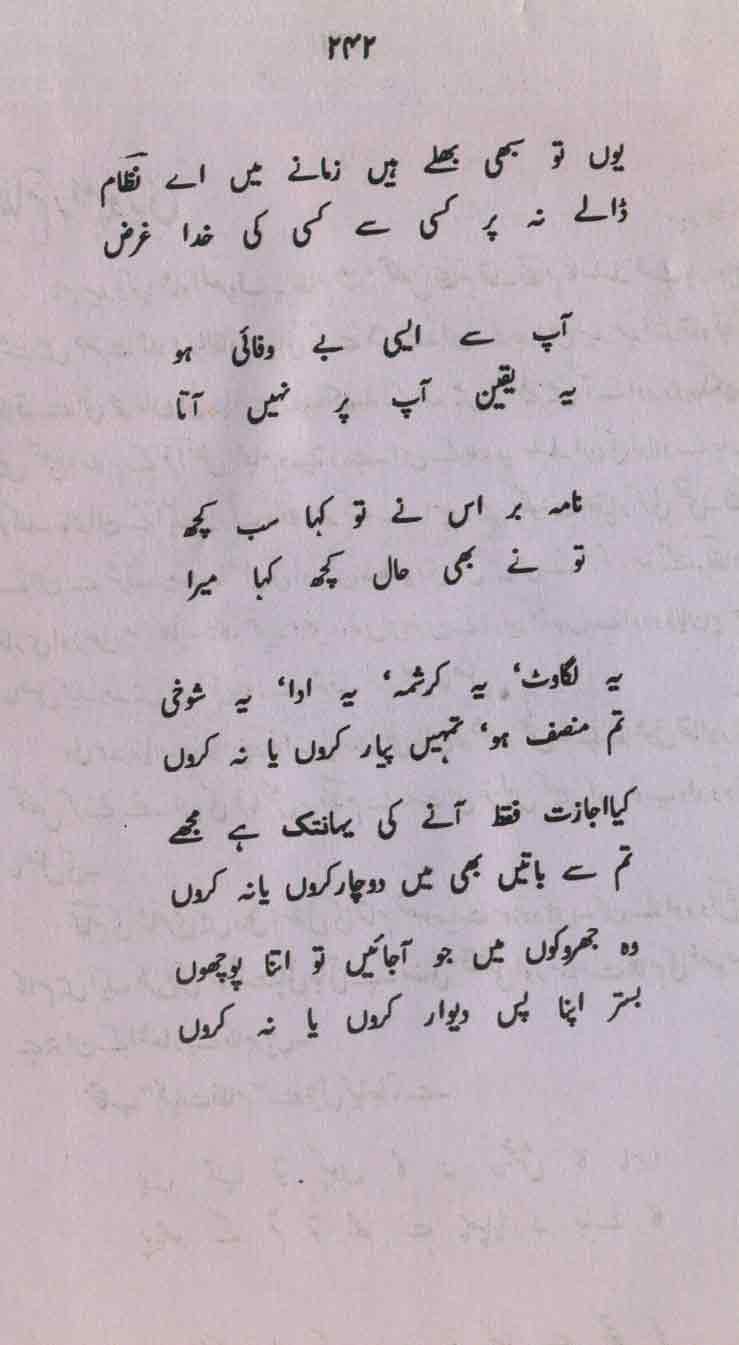 ۲۴۲
یوں تو سبھی بھلے ہیں زمانے میں اے نظام
ڈالے نہ پر کسی سے کسی کی خدا غرض
آپ سے ایسی بے وفائی ہو
یہ یقین آپ پر نہیں آتا
نامہ بر اس نے تو کہا سب کچھ
تو نے بھی حال کچھ کہا میرا
یہ لگاوٹ، یہ کرشمہ، یہ ادا، یہ شوخی
تم منصف ہو، تمہیں پیار کروں یا نہ کروں
کیا اجازت فقط آنے کی یہانتک ہے مجھے
تم سے باتیں بھی میں دوچار کروں یا نہ کروں
وہ جھروکوں میں جو آجائیں تو اتنا پوچھوں
بستر اپنا پس دیوار کروں یا نہ کروں